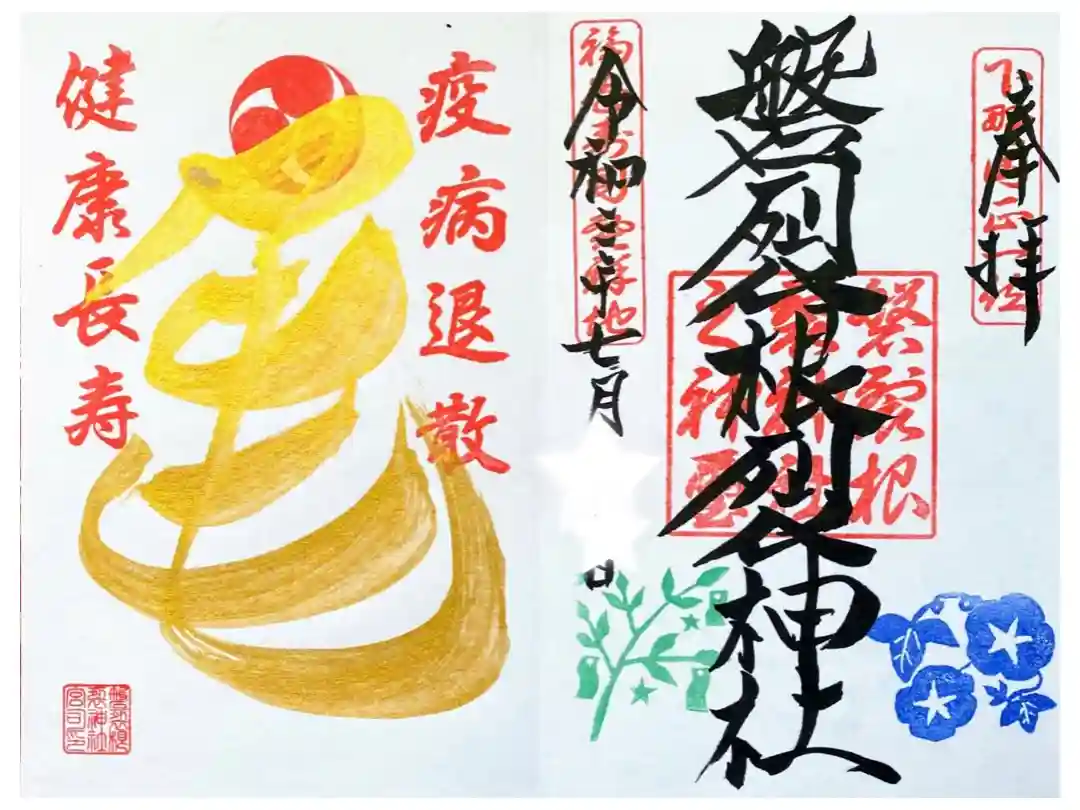 奉拝
磐裂根裂神社
磐裂根
裂神社
之神璽
令和三年七月
日
疫病退散
健康長寿
磐裂根
裂神社
宮司印